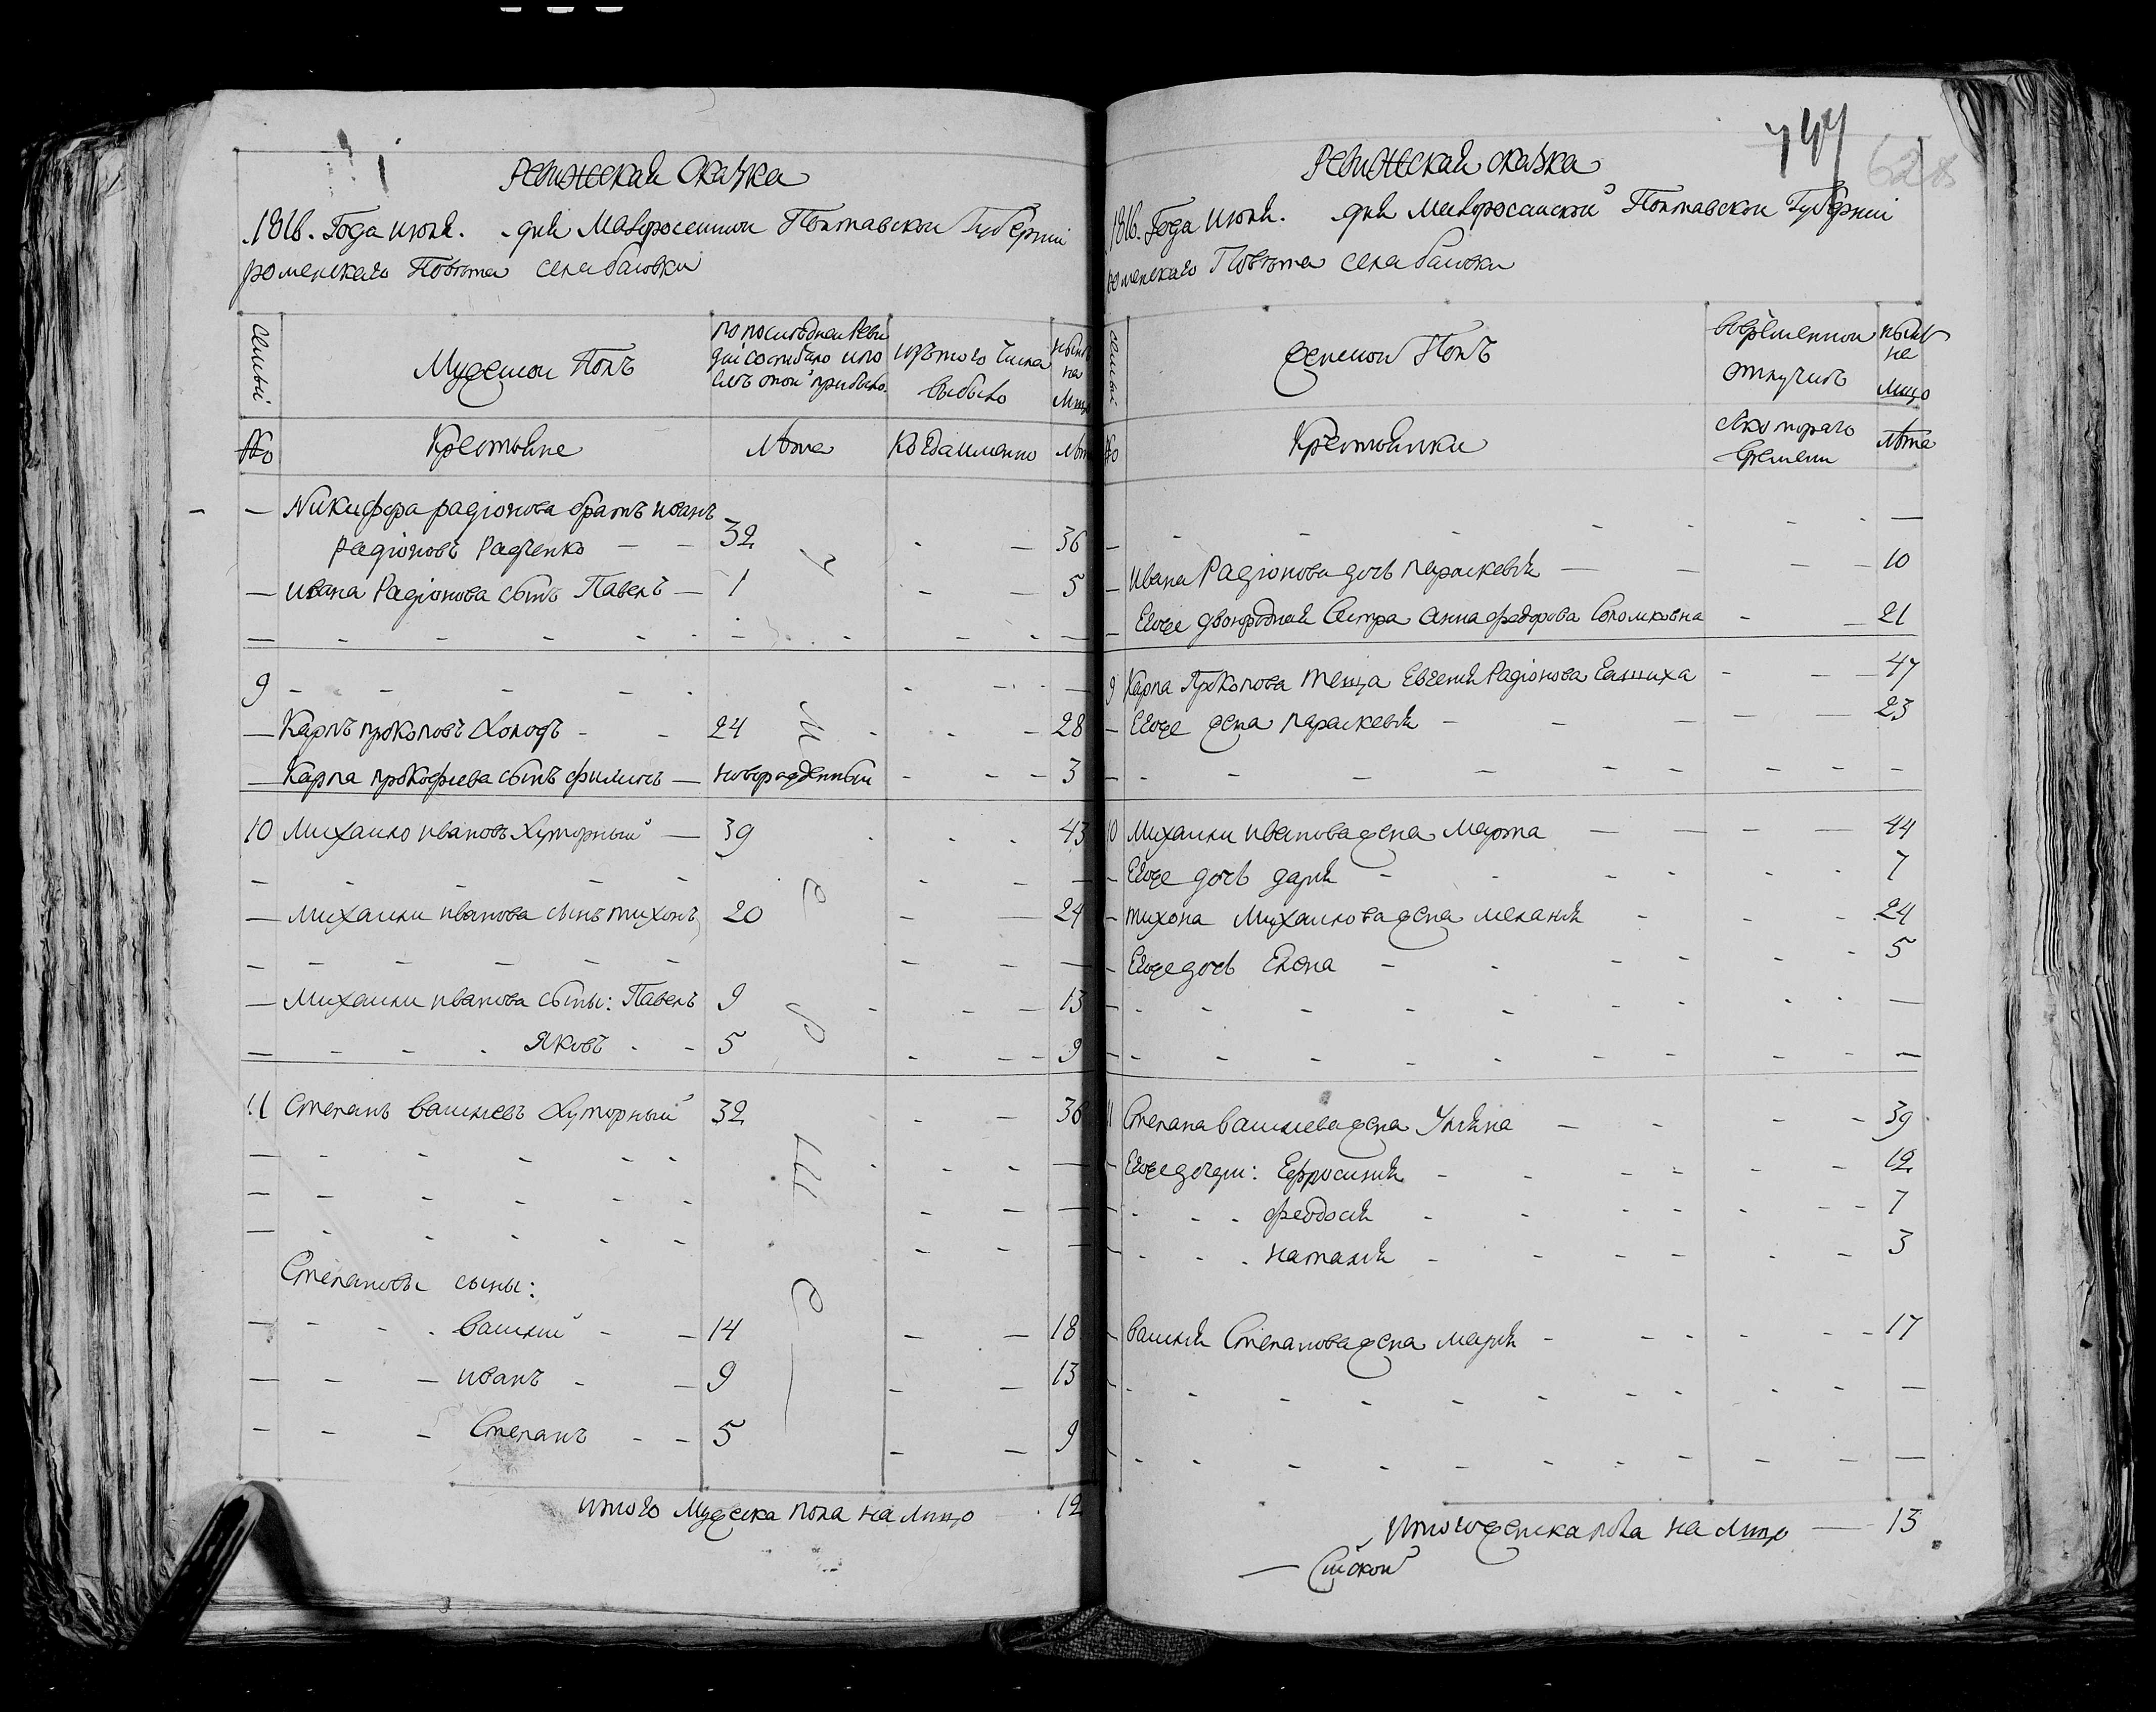 Ревижская Сказка
1816. Года июля. дня Малороссийской Полтавской Губерній
роменскаго Повѣта села басовки
семьи
Мужеской Полъ
по последней Реви
зіи состояло или
слѣ оной прибыло
изъ того числа
выбыло
нынѣ
на
Лицо
№
Крестьяне
Лѣта
Когда именно
Лѣта
— Никифора радіонова братъ иванъ
Радіоновъ Радченко — — 32 — 36
— ивана Радіонова сынъ Павелъ — 1 — 5
9
— Карпъ прокоповъ Холодъ - - 24 - 28
— Карпа прокофиева сынъ филипъ — новорожденный - - 3
10 Михайло ивановъ Хуторный — 39 43
— Михайли иванова сынъ тихонъ 20 — 24
— Михайли иванова сыны: Павелъ 9 — 13
Яковъ - - 5 - 9
11 Степанъ василиевъ Хуторный 32 — 36
Степановы сыны:
василий - — 14 — 18
иванъ - — 9 — 13
Степанъ - - 5 — 9
итого Мужеска пола на лицо 12
744
628
Ревижская сказка
1816. Года июля. дня Малоросийской Полтавской Губерній
роменскаго Повѣта села басовки
семьи
женской Полъ
вовременной
отлучкѣ
нынѣ
на
лицо
№
Крестьянки
скотораго
времени
лѣта
— ивана Радіонова дочь параскевія — — 10
— Егоже двоюродная Сестра анна федорова Соломковна - — 21
9 Карпа Прокопова теща Евгенія Радіонова Еашиха - — 47
— Егоже жена параскевія — 23
10 Михайли иванова жена Марта — — 44
- Егоже дочь дарія - 7
- тихона Михайлова жена меланія - 24
- Егоже дочь Елена - 5
11 Степана василиева жена Уляна — - 39
- Егоже дочери: Ефросинія - 12
феодосія - 7
наталія - 3
- василія Степанова жена марія - 17
итого женска пола на лицо — 13